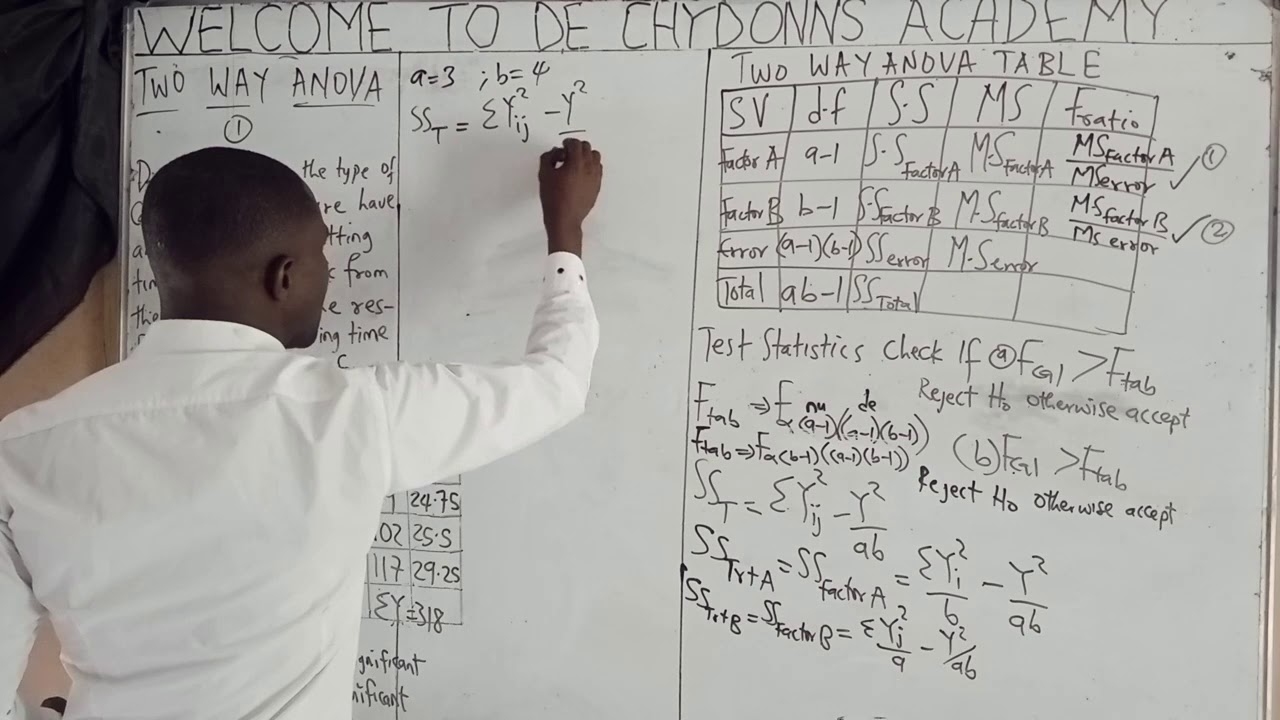 WELCOME TO DE CHYDONNS ACADEMY
TWO WAY ANOVA
①
the type of
have
tting
from
res-
ing time
C
24.75
.02 25.5
117 29.25
ΣY=318
gnificant
nificant
a=3 ; b=4
SS_T = ΣY²ij - Y²
TWO WAY ANOVA TABLE
SV d.f S.S MS Fratio
Factor A a-1 S.S factor A M.S factor A MS factor A / MS error ✓ ①
Factor B b-1 S.S factor B M.S factor B MS factor B / Ms error ✓ ②
Error (a-1)(b-1) SS error M.S error
Total ab-1 SS Total
Test Statistics Check If ⓐ Fcal > Ftab
Reject Ho otherwise accept
nu de
Ftab ⇒ Fα(a-1)((a-1)(b-1))
Ftab ⇒ Fα(b-1)((a-1)(b-1))
(b) Fcal > Ftab
Reject Ho otherwise accept
SS_T = ΣY²ij - Y²/ab
SS_Trt A = SS factor A = ΣY²i/b - Y²/ab
SS_Trt B = SS factor B = ΣY²j/a - Y²/ab